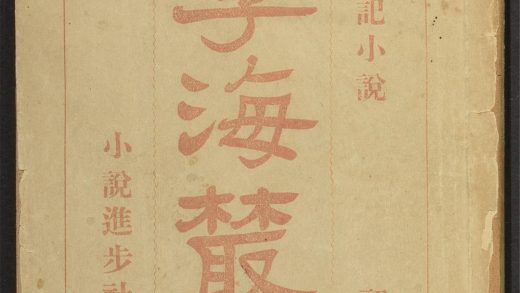 記小說
海叢
小說進步社